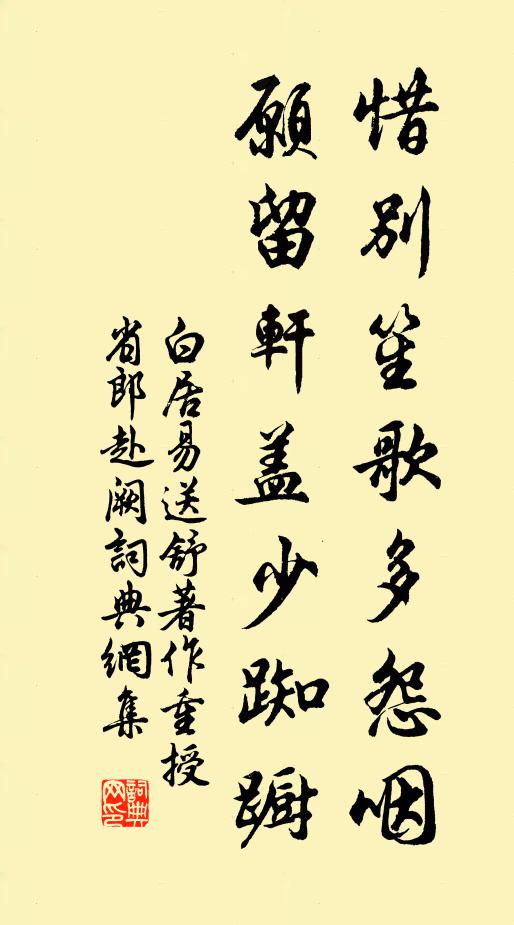 惜別笙歌多怨咽
願留軒盖少踟躕
白居易送舒著作重授
省郎赴阙詞典網集
詞典
网印